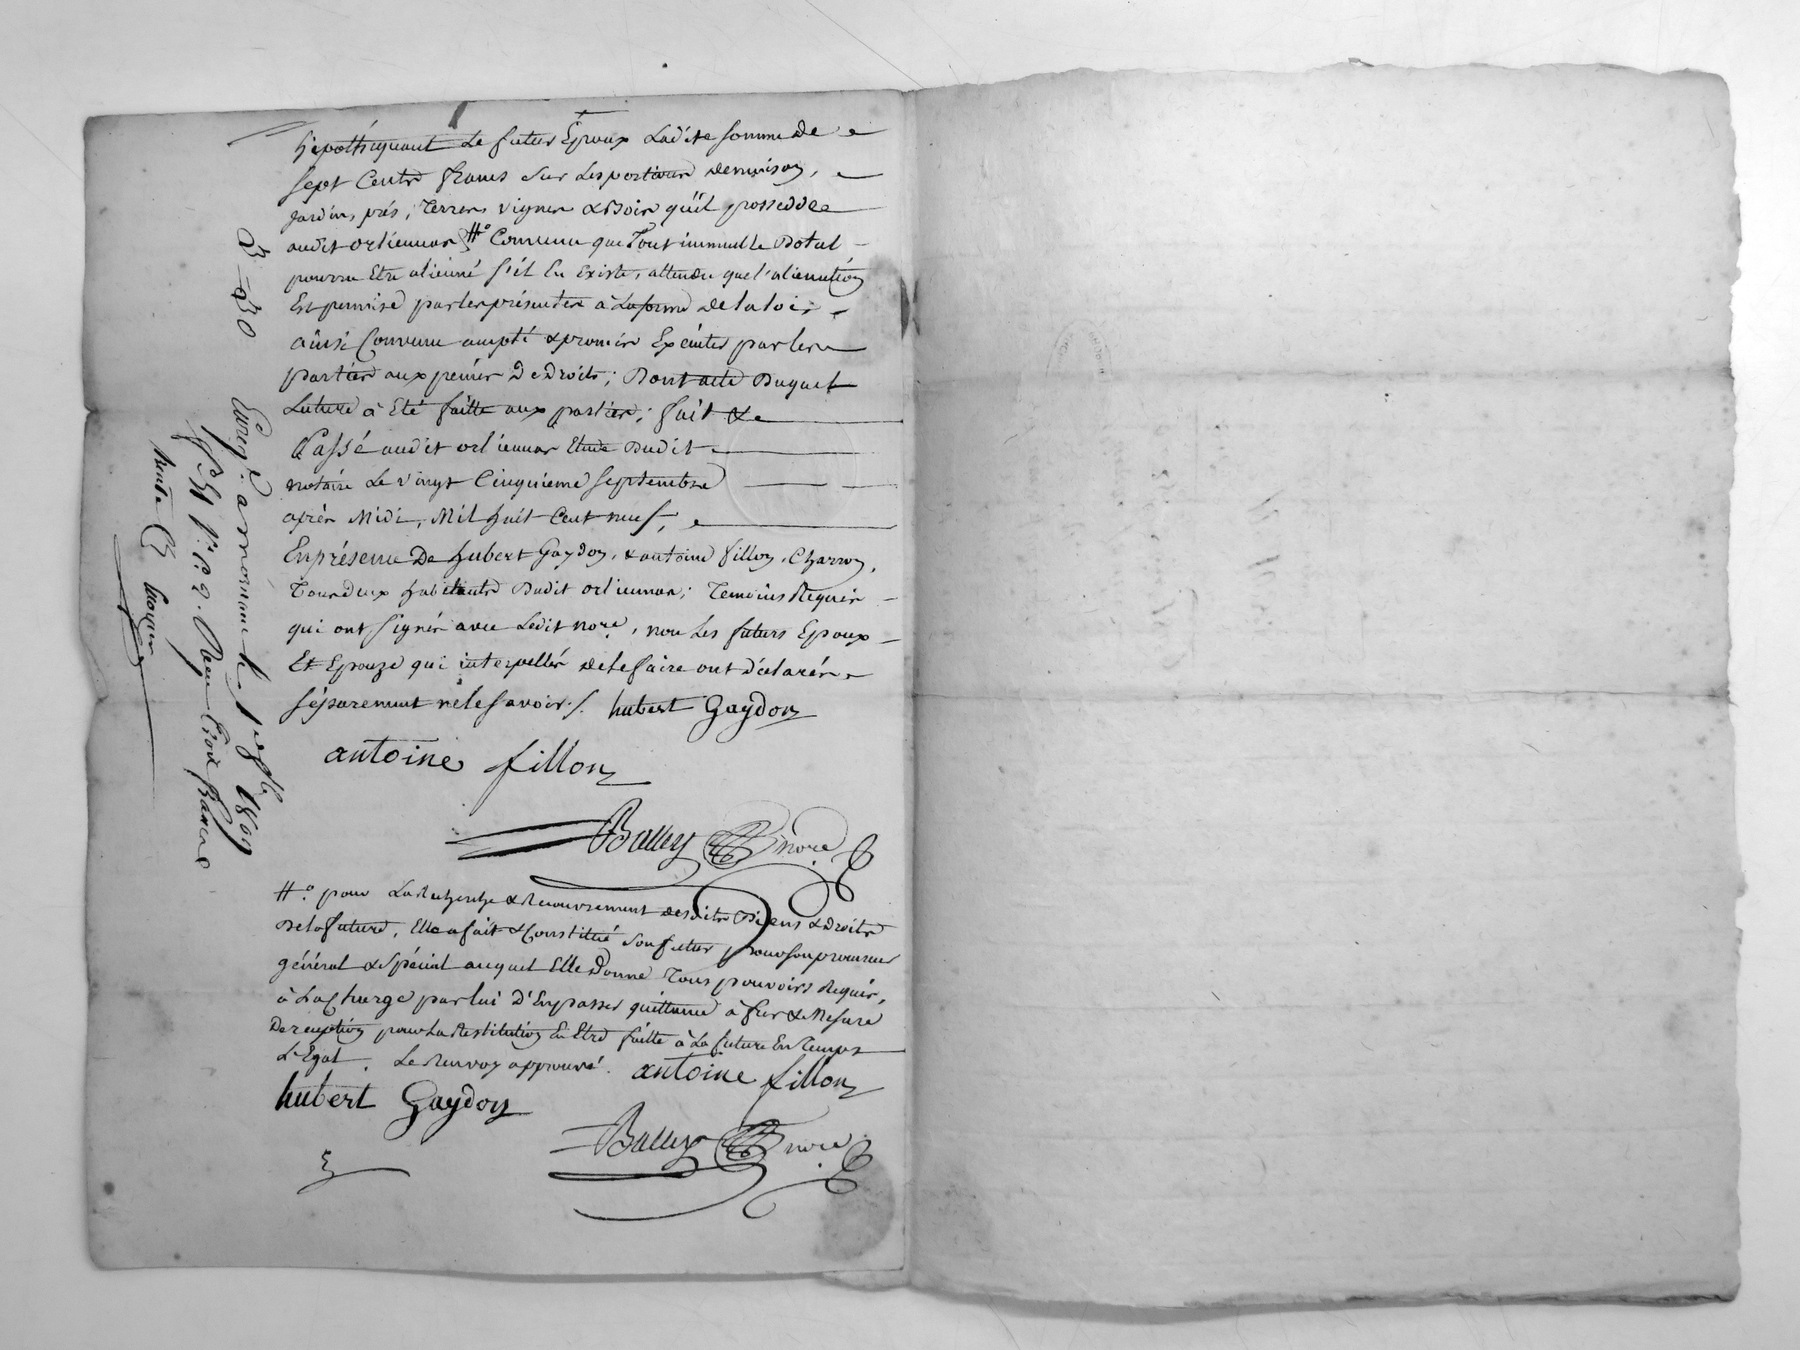 hipothéquant Le futur Epoux Ladite somme de
sept Cents francs sur Les portions demaison,
jardin, prés, Terres, vignes & Bois qu'il possedde
audit orlienas #° Convenu que Tout immeuble Dotal
pourra Etre aliéné s'il En Existe, attendu que l'alienation
Est permise par les présentes à Laforme de la loi;
ainsi Convenu accepté & promis Exécuter par les
parties aux peines De Droits; Dont acte Duquel
Lecture à Eté faitte aux parties; fait &
Passé audit orlienas Etude Dudit
notaire Le vingt Cinquieme Septembre
après Midi, Mil huit Cent neuf,
En présence De hubert Gaydon, & antoine fillon, Charron,
Tous deux habitants Dudit orlienas; Temoins Requis
qui ont signés avec Ledit nore, non Les futurs Epoux
Et Epouze qui interpellés de le faire ont déclarés
séparement ne le savoir./. hubert Gaydon
antoine fillon
Balley nore
#° pour La Recherche & Recouvrement desdits Biens & Droits
De la future, Elle a fait & Constitué son futur pour son procureur
général & spécial auquel Elle Donne Tous pouvoirs Requis,
à La Charge par lui D'En passer quittance à fur & Mesure
De reception pour La Restitution En Etre faitte à La future En Temps
& Egal. Le Renvoy approuvé. antoine fillon
hubert Gaydon
Balley nore
Enregé. a mornant le 1809
Reçu francs